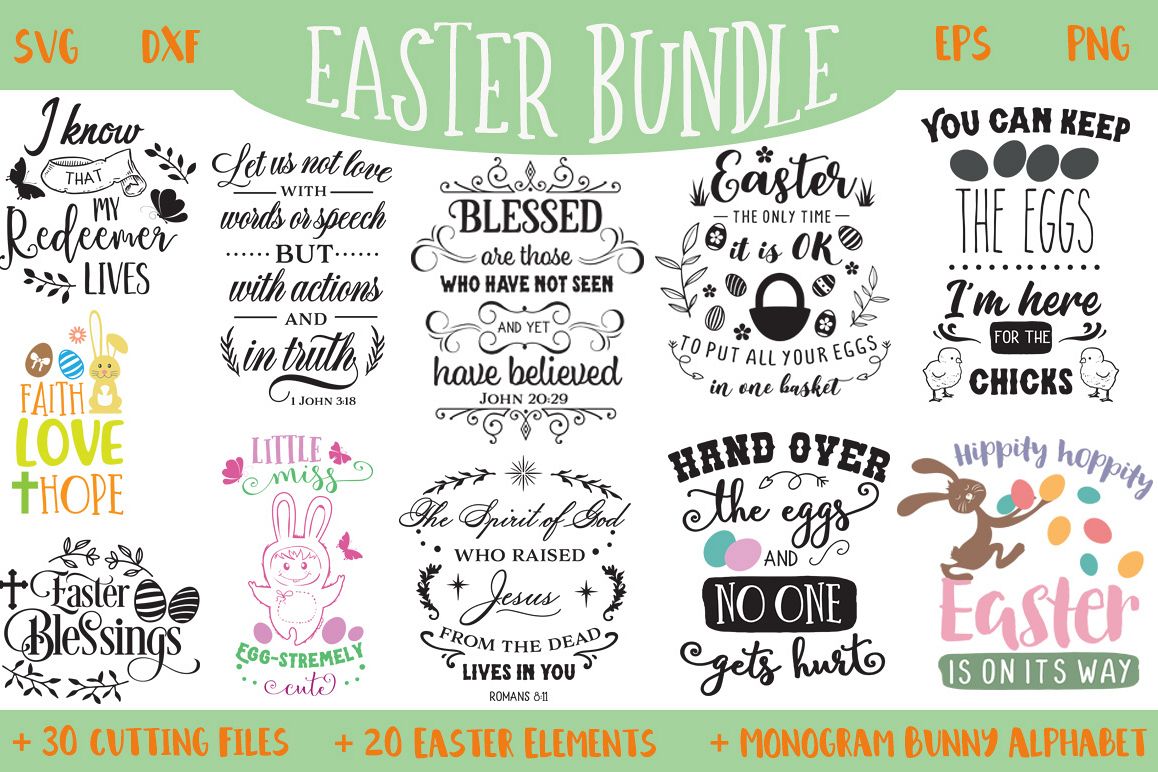 SVG DXF EASTER BUNDLE EPS PNG
I know
THAT
MY
Redeemer
LIVES
Let us not love
WITH
words or speech
BUT
with actions
AND
in truth
1 JOHN 3:18
BLESSED
are those
WHO HAVE NOT SEEN
AND YET
have believed
JOHN 20:29
Easter
THE ONLY TIME
it is OK
TO PUT ALL YOUR EGGS
in one basket
YOU CAN KEEP
THE EGGS
I'm here
FOR THE
CHICKS
FAITH
LOVE
HOPE
LITTLE
miss
EGG-STREMELY
cute
The Spirit of God
WHO RAISED
Jesus
FROM THE DEAD
LIVES IN YOU
ROMANS 8:11
HAND OVER
the eggs
AND
NO ONE
gets hurt
Hippity hoppity
Easter
IS ON ITS WAY
Easter
Blessings
+ 30 CUTTING FILES + 20 EASTER ELEMENTS + MONOGRAM BUNNY ALPHABET